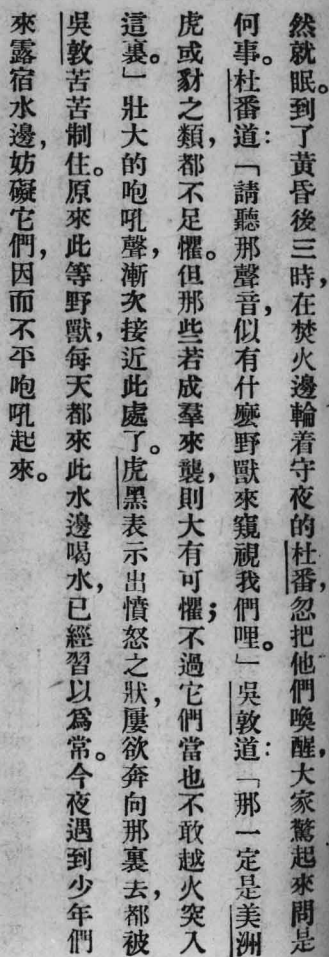 然就眠。到了黃昏後三時，在焚火邊輪着守夜的杜番，忽把他們喚醒，大家驚起來問是
何事。杜番道：「請聽那聲音，似有什麼野獸來窺視我們哩。」吳敦道：「那一定是美洲
虎或豺之類，都不足懼。但那些若成羣來襲，則大有可懼；不過它們當也不敢越火突入
這裏。」壯大的咆吼聲，漸次接近此處了。虎黑表示出憤怒之狀，屢欲奔向那裏去，都被
吳敦苦苦制住。原來此等野獸，每天都來此水邊喝水，已經習以爲常。今夜遇到少年們
來露宿水邊，妨礙它們，因而不平咆吼起來。